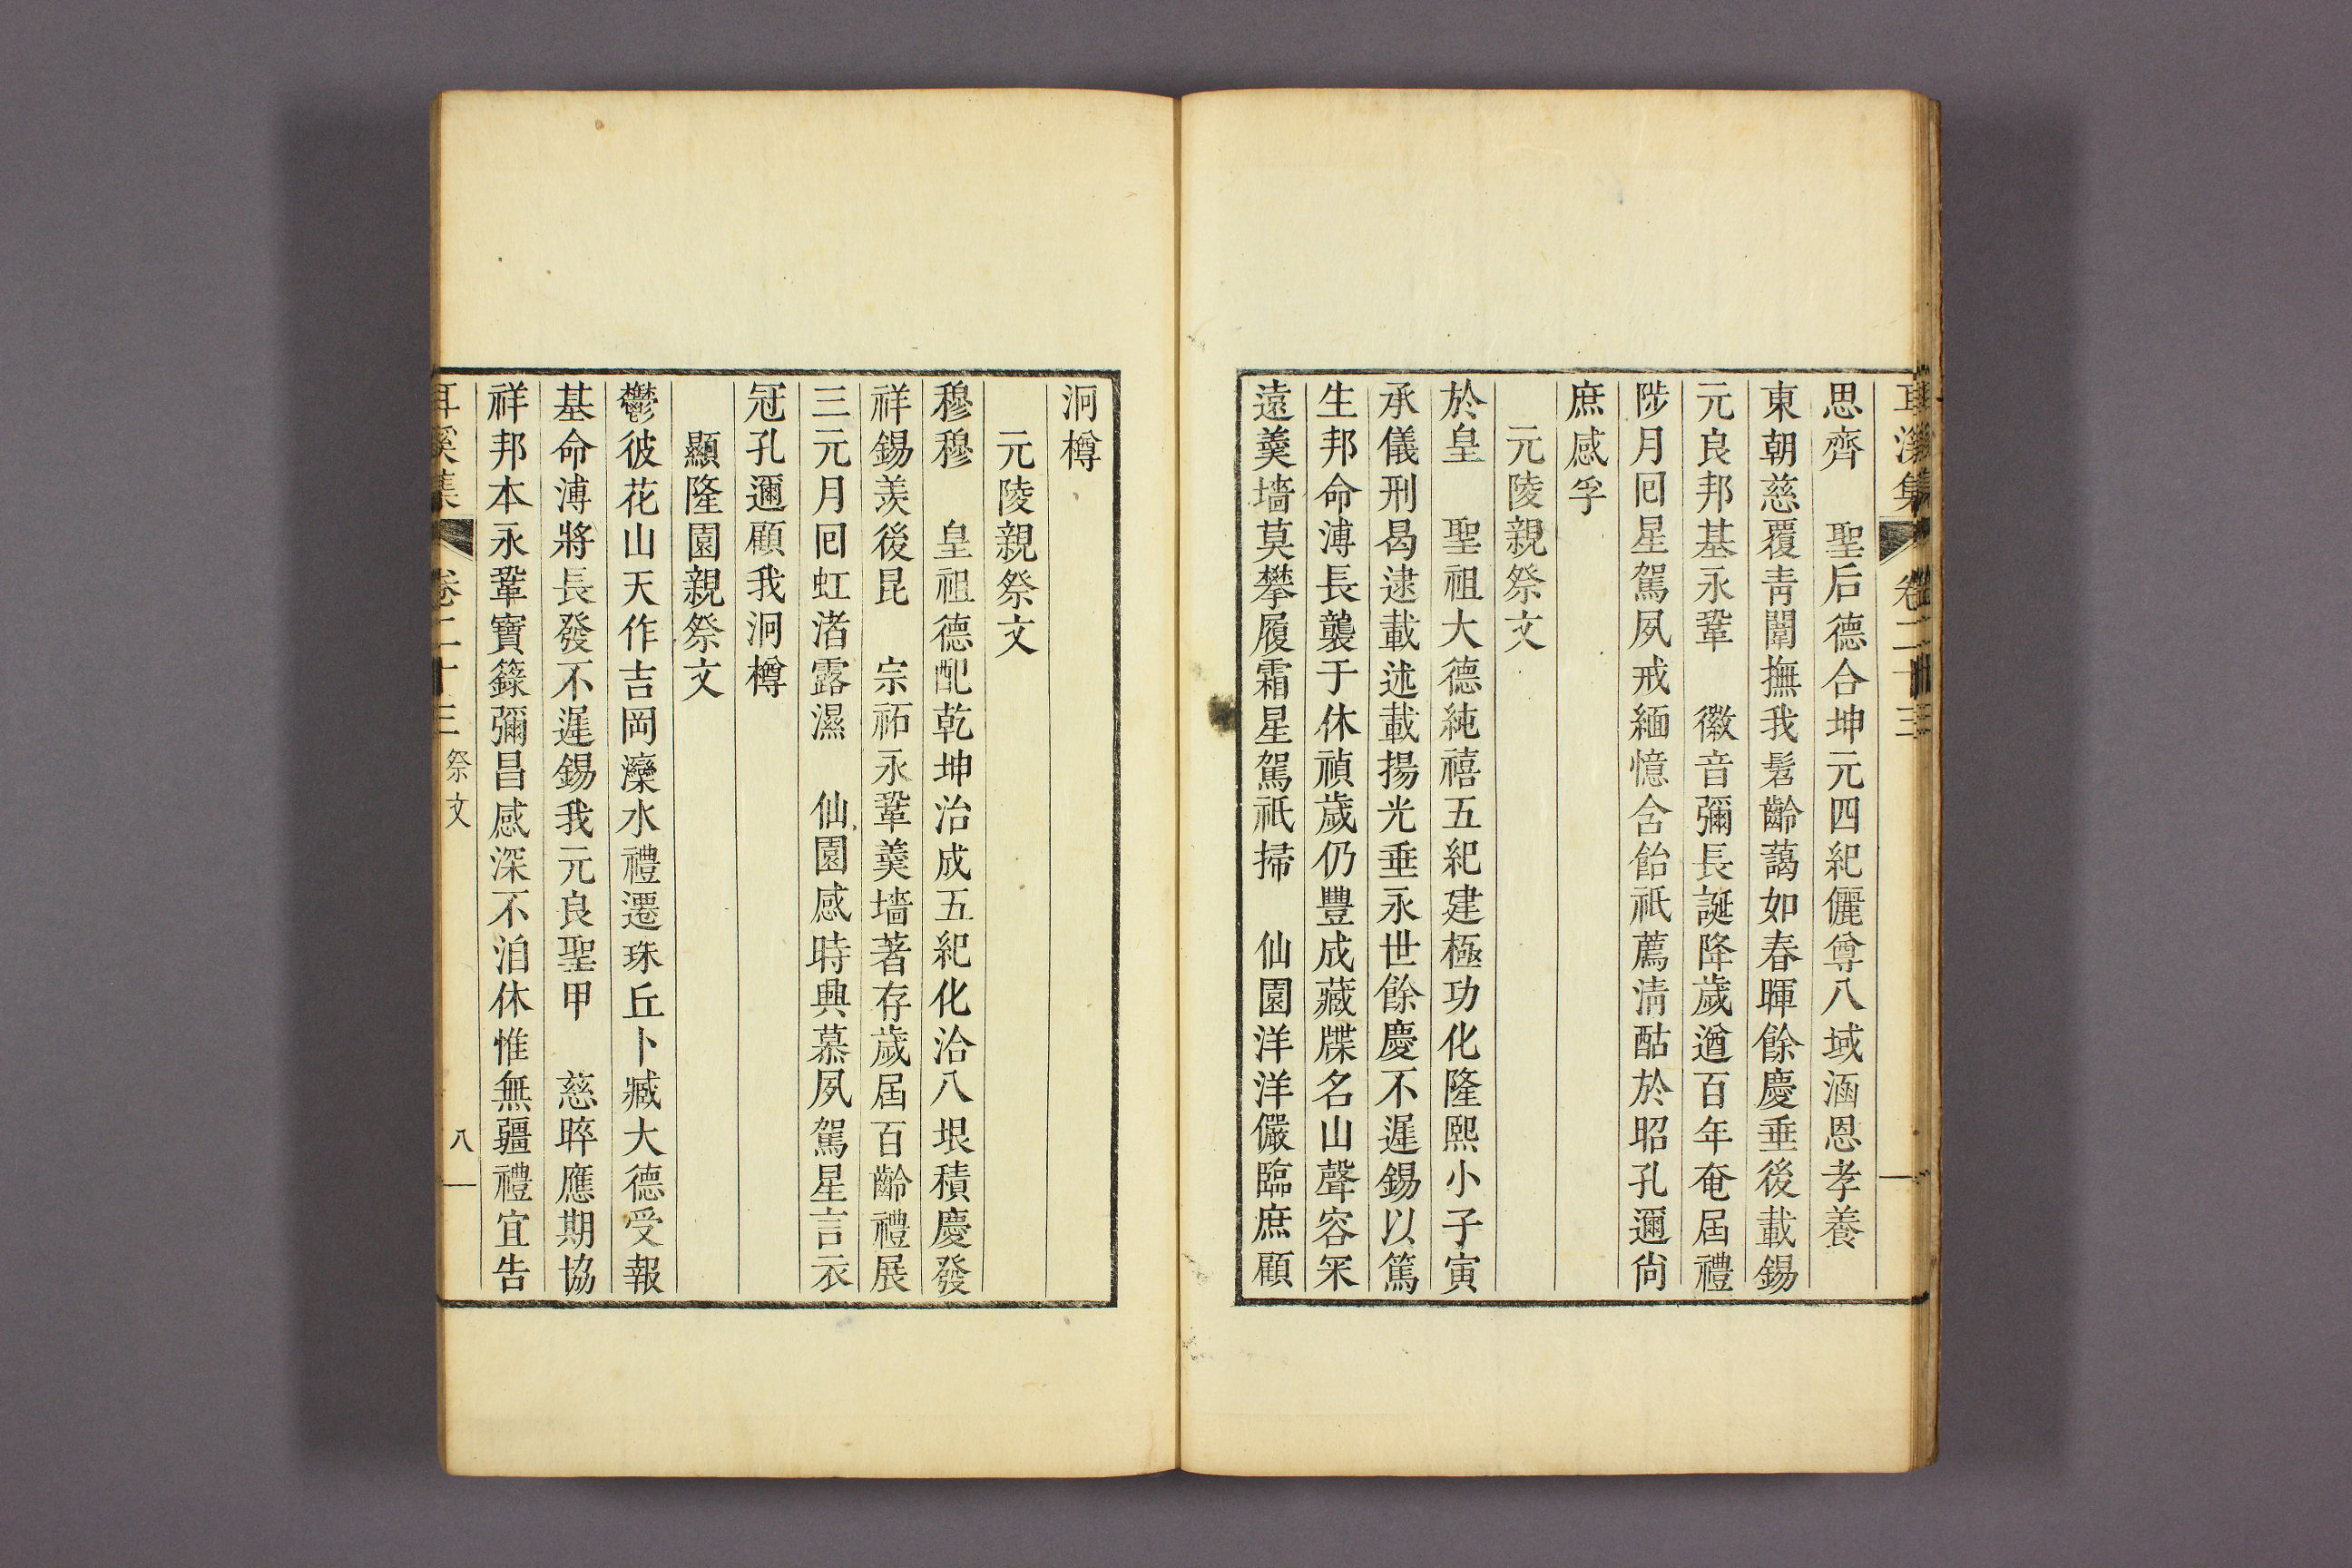 耳溪集 卷二十三
思齊　聖后德合坤元四紀儷尊八域涵恩孝養
東朝慈覆靑闈撫我髫齡藹如春暉餘慶垂後載錫
元良邦基永鞏　徽音彌長誕降歲遒百年奄屆禮
陟月回星駕夙戒緬憶含飴祇薦淸酤於昭孔邇尙
庶感孚
元陵親祭文
於皇　聖祖大德純禧五紀建極功化隆熙小子寅
承儀刑曷逮載述載揚光垂永世餘慶不遲錫以篤
生邦命溥長襲于休禎歲仍豐成藏牒名山聲容罙
遠羹墻莫攀履霜星駕祇掃　仙園洋洋儼臨庶顧
泂樽
元陵親祭文
穆穆　皇祖德配乾坤治成五紀化洽八垠積慶發
祥錫羡後昆　宗祏永鞏羹墻著存歲屆百齡禮展
三元月回虹渚露濕　仙園感時興慕夙駕星言衣
冠孔邇顧我泂樽
顯隆園親祭文
鬱彼花山天作吉岡灤水禮遷珠丘卜臧大德受報
基命溥將長發不遲錫我元良聖甲　慈晬應期協
祥邦本永鞏寶籙彌昌感深不洎休惟無疆禮宜告
耳溪集 卷二十三 祭文 八